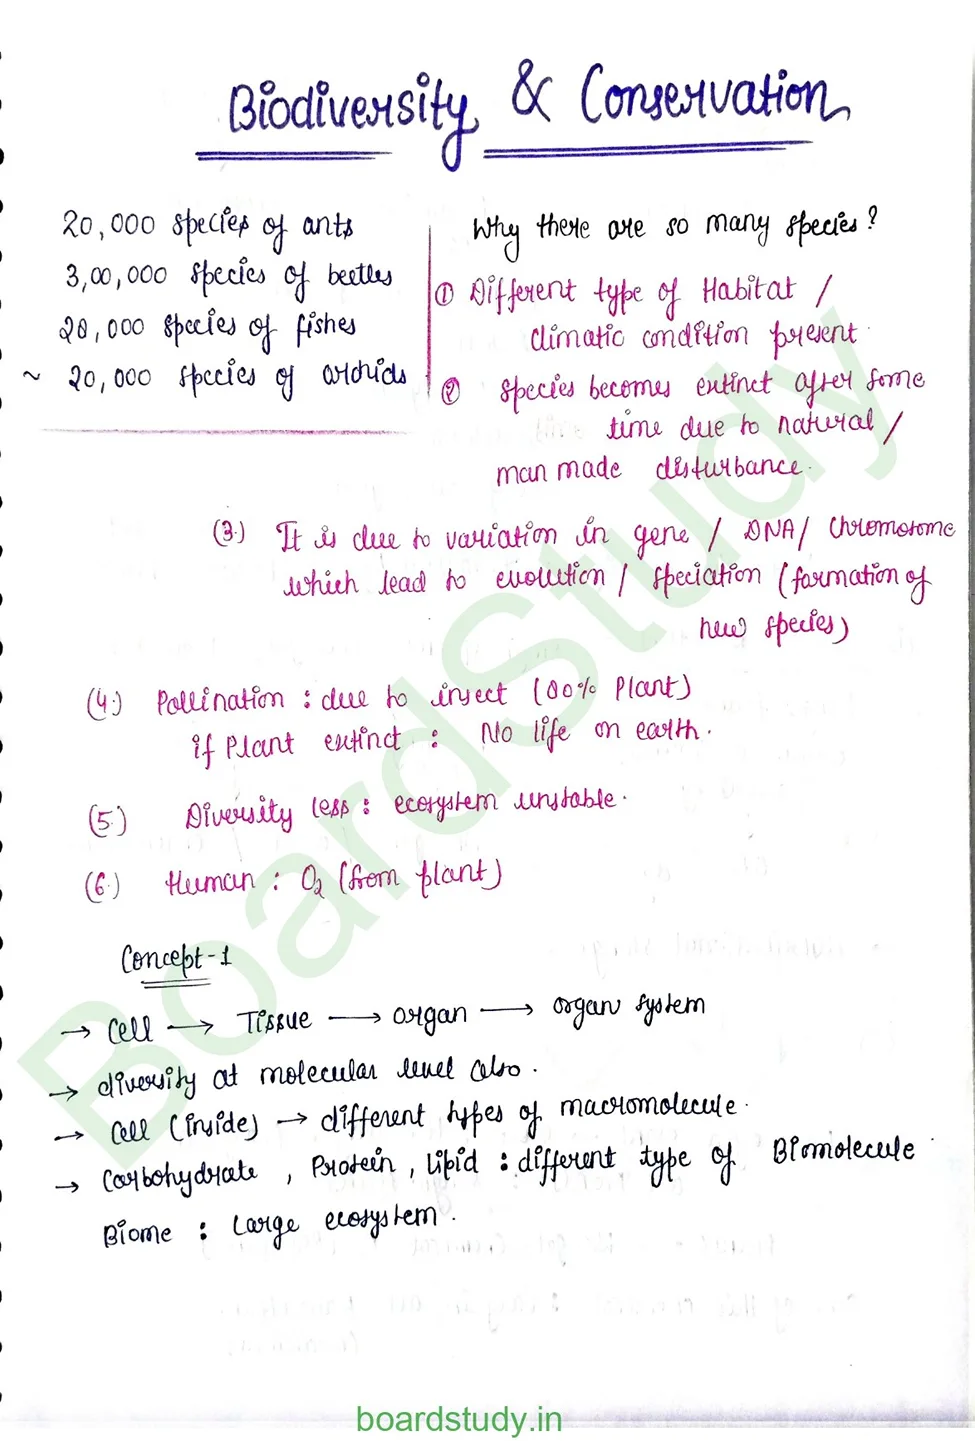 Biodiversity & Conservation
20,000 species of ants
3,00,000 species of beetles
28,000 species of fishes
~ 20,000 species of orchids
Why there are so many species?
① Different type of Habitat /
Climatic condition present.
② species becomes extinct after some
time due to natural /
man made disturbance.
(3.) It is due to variation in gene / DNA / Chromosome
which lead to evolution / speciation (formation of
new species)
(4.) Pollination : due to insect (00% Plant)
if Plant extinct : No life on earth.
(5.) Diversity less : ecosystem unstable.
(6.) Human : O₂ (from plant)
Concept-1
→ Cell → Tissue → organ → organ system
→ diversity at molecular level also.
→ Cell (inside) → different types of macromolecule.
→ Carbohydrate, Protein, lipid : different type of Biomolecule
Biome : Large ecosystem.
BoardStudy
boardstudy.in